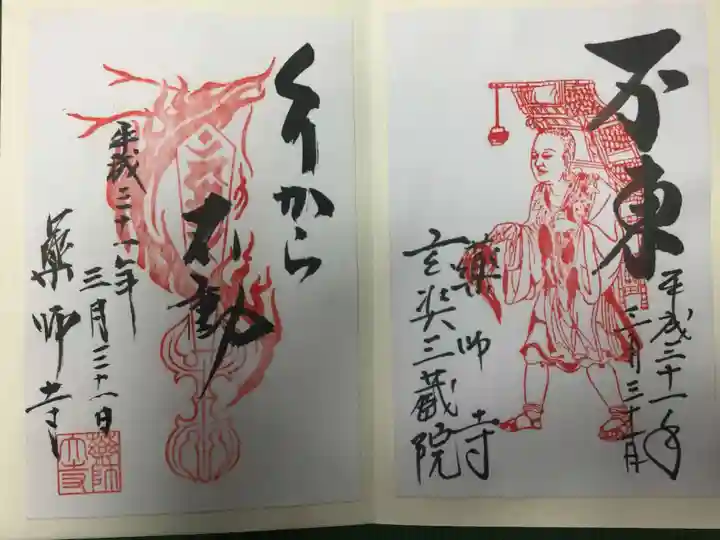 不東
平成三十一年
三月三十一日
薬師寺
玄奘三蔵院
から
不動
平成三十一年
三月三十一日
薬師寺